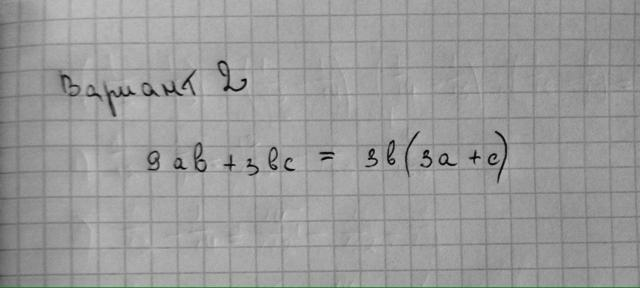 Вариант 2
9ab + 3bc = 3b(3a + c)